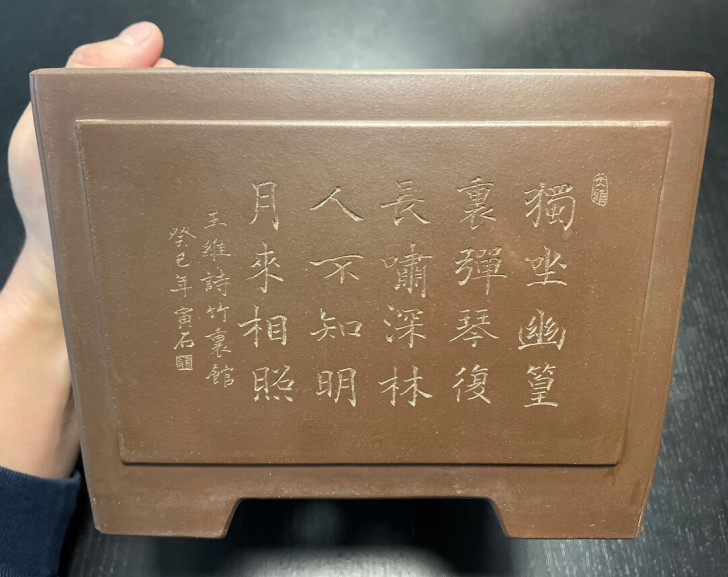 獨坐幽篁
裏彈琴復
長嘯深林
人不知明
月來相照
王維詩竹裏館
癸巳年寅石